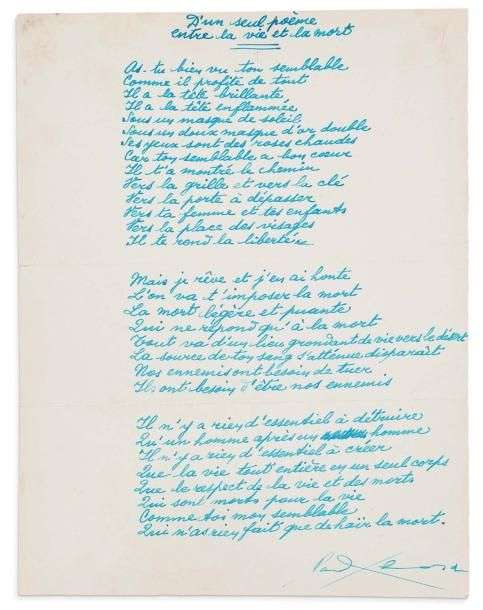 D'un seul poème
entre la vie et la mort
As-tu bien vu ton semblable
Comme il profite de tout
Il a la tête brillante
Il a la tête enflammée
Sous un masque de soleil
Sous un doux masque d'or double
Ses yeux sont des roses chaudes
Car ton semblable a bon cœur
Il t'a montré le chemin
Vers la grille et vers la clé
Vers la porte à dépasser
Vers ta femme et tes enfants
Vers la place des visages
Il te rend la liberté
Mais je rêve et j'en ai honte
L'on va t'imposer la mort
La mort légère et puante
Qui ne répond qu'à la mort
Tout va d'un lieu grondant de vie vers le désert
La source de ton sang s'atténue disparaît
Nos ennemis ont besoin de tuer
Ils ont besoin d'être nos ennemis
Il n'y a rien d'essentiel à détruire
Qu'un homme après un homme
Il n'y a rien d'essentiel à créer
Que la vie tout entière en un seul corps
Que le respect de la vie et des morts
Qui sont morts pour la vie
Comme toi mon semblable
Qui n'as rien fait que de haïr la mort.
Paul